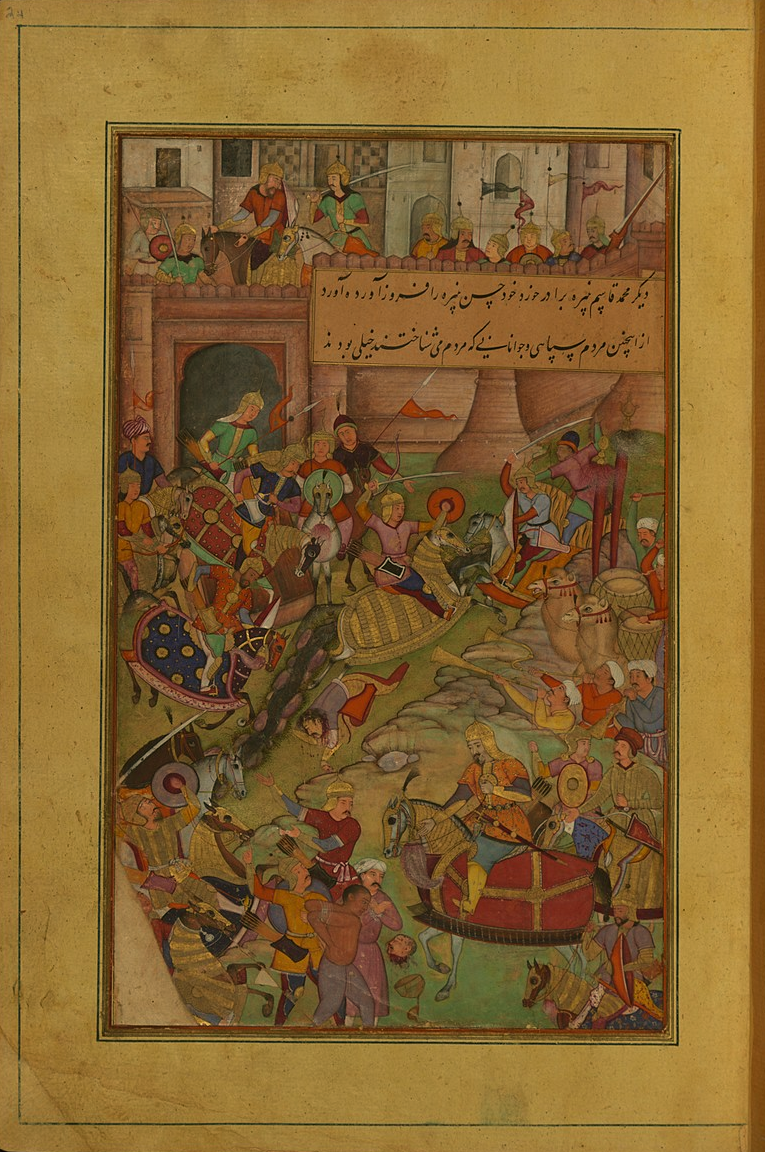 24
دیکر محمد قاسم نبیره برادر خورد خود حسن نبیره را فروز آورده آورد
از اینچنین مردم سپاهی و جوانانی که مردم می شناختند خیلی بودند